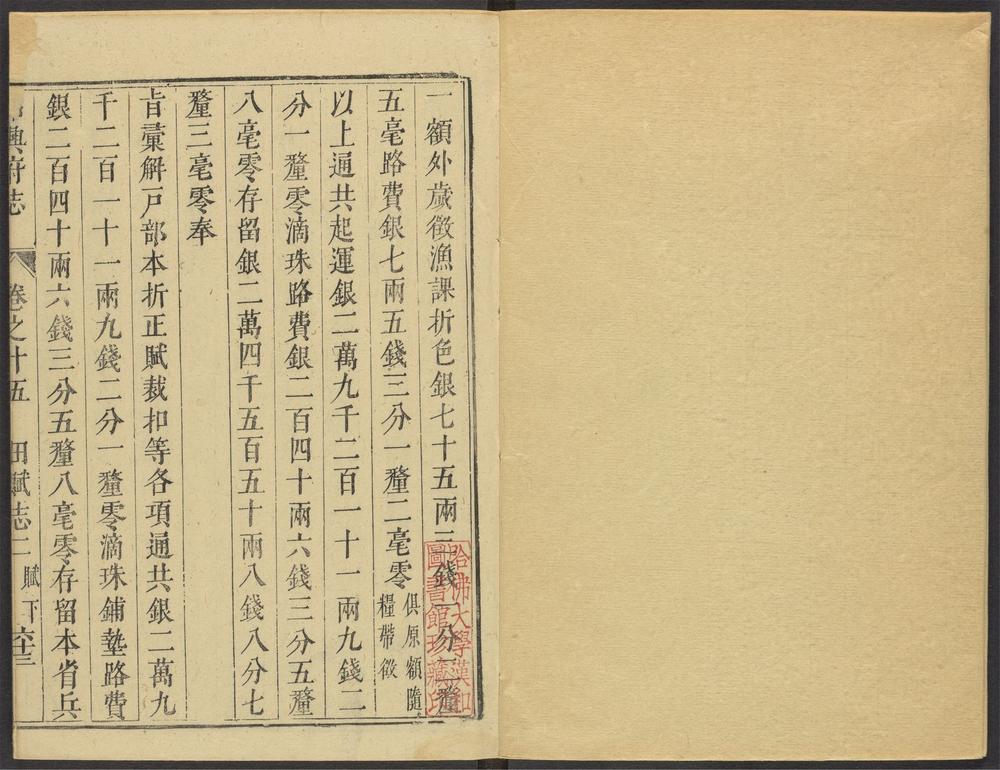 一額外歲徵漁課折色銀七十五兩三錢一分二釐
五毫路費銀七兩五錢三分一釐二毫零俱原額隨糧帶徵
以上通共起運銀二萬九千二百一十一兩九錢二
分一釐零滴珠路費銀二百四十兩六錢三分五釐
八毫零存留銀二萬四千五百五十兩八錢八分七
釐三毫零奉
旨彙解戸部本折正賦裁扣等各項通共銀二萬九
千二百一十一兩九錢二分一釐零滴珠鋪墊路費
銀二百四十兩六錢三分五釐八毫零存留本省兵
興府志 卷之十五 田賦志二 賦下 六十三
哈佛大學漢和
圖書館珍藏印